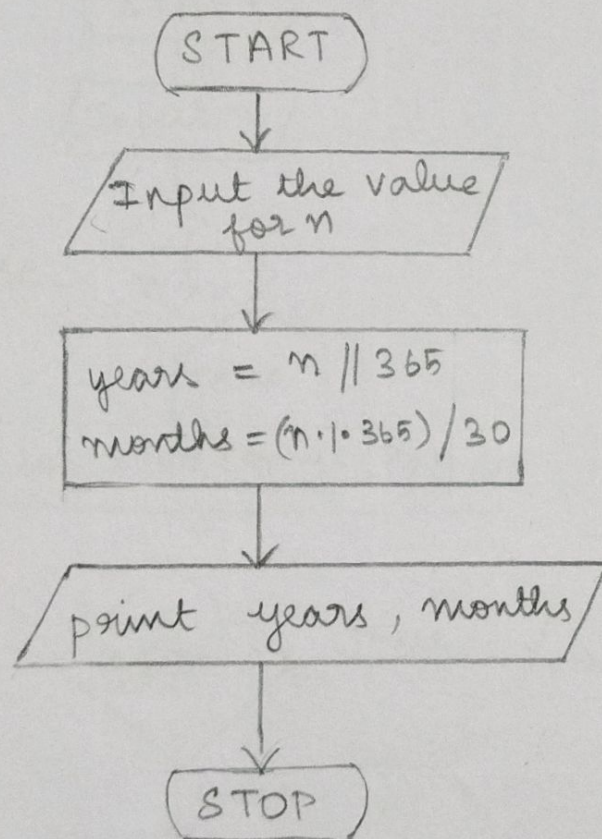 START
Input the value
for n
years = n // 365
months = (n % 365) / 30
print years, months
STOP